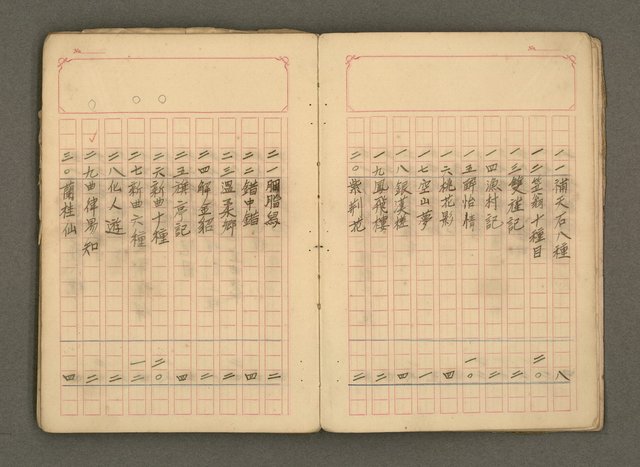 一一補天石八種 八
一二笠翁十種目 二〇
一三雙種記 二
一四漁村記 二
一五醉怡情 一〇
一六桃花影 四
一七空山夢 一
一八銀漢槎 四
一九鳳飛樓 二
二〇紫荊花 二
二一胭脂舄 二
二二錯中錯 四
二三溫柔鄉 二
二四解金貂 二
二五禪 記 四
二六新曲十種 二〇
二七新曲六種 一二
二八仙人遊 二
二九曲律易知 二
三〇蘭桂仙 四